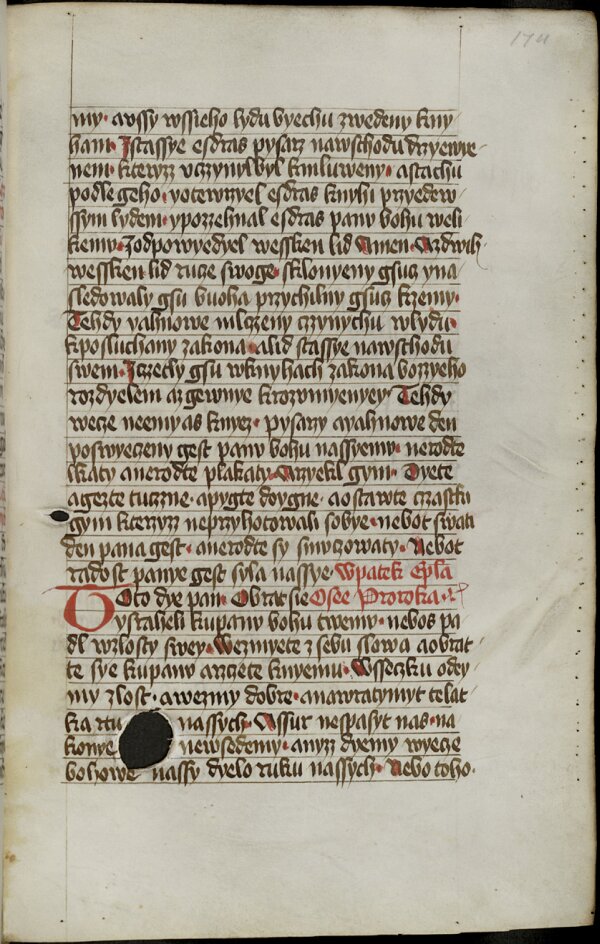 174
my· a vssy wssieho lydu byechu zwedeny kny
ham· Jstassye esdras pysarz nawschodu drzyewie
nem· kteryz vczynyl byl kmluweny· a stachu
podle geho· yotewrzyel esdras knyhi przyedew
ssym lydem· ypozehnal esdras panu bohu weli
kemu· Zodpowyedyel wessken lid Amen· Azdwih
wessken lid ruce swoge· sklonyeny gsuc yna
sledowaly gsu buoha przychilny gsuc kzemy·
Tehdy yahnowe mlczeny czynychu wlydu·
kposluchany zakona· a lid stassye nawschodu
swem· Jczechy gsu wknyhach zakona bozyeho
rozdyelem a zgewnye krozumyenyey· Tehdy
wece neemyas knyez· pysarzy a yahnowe den
poswyeceny gest panu bohu nassyemu· nerodte
lkaty a nerodte plakaty· Arzyekl gym· Dyete
a gezte tuczne· a pygte doygne· a ostawte czastku
gym kteryz neprzyhotowali sobye· nebot swati
den pana gest· a nerodte sy smuczowaty· Nebot
radost panye gest syla nassye· Wpatek Epla
Toto dye pan· Obrat sie Osee Proroka·
ysraheli kupanu bohu twemu· nebos pa
dl wzlosty swey· Wezmyete z sebu slowa a obrat
te sye kupanu a rzcete knyemu· Wsseczku odey
my zlost· a wezmy dobre· a nawratymyt telat
ka rtu nassych· Assur nespasyt nas· na
konye newsedemy· anyz dyemy wyece
bohowe nassy dyelo ruku nassych· Nebo toho·